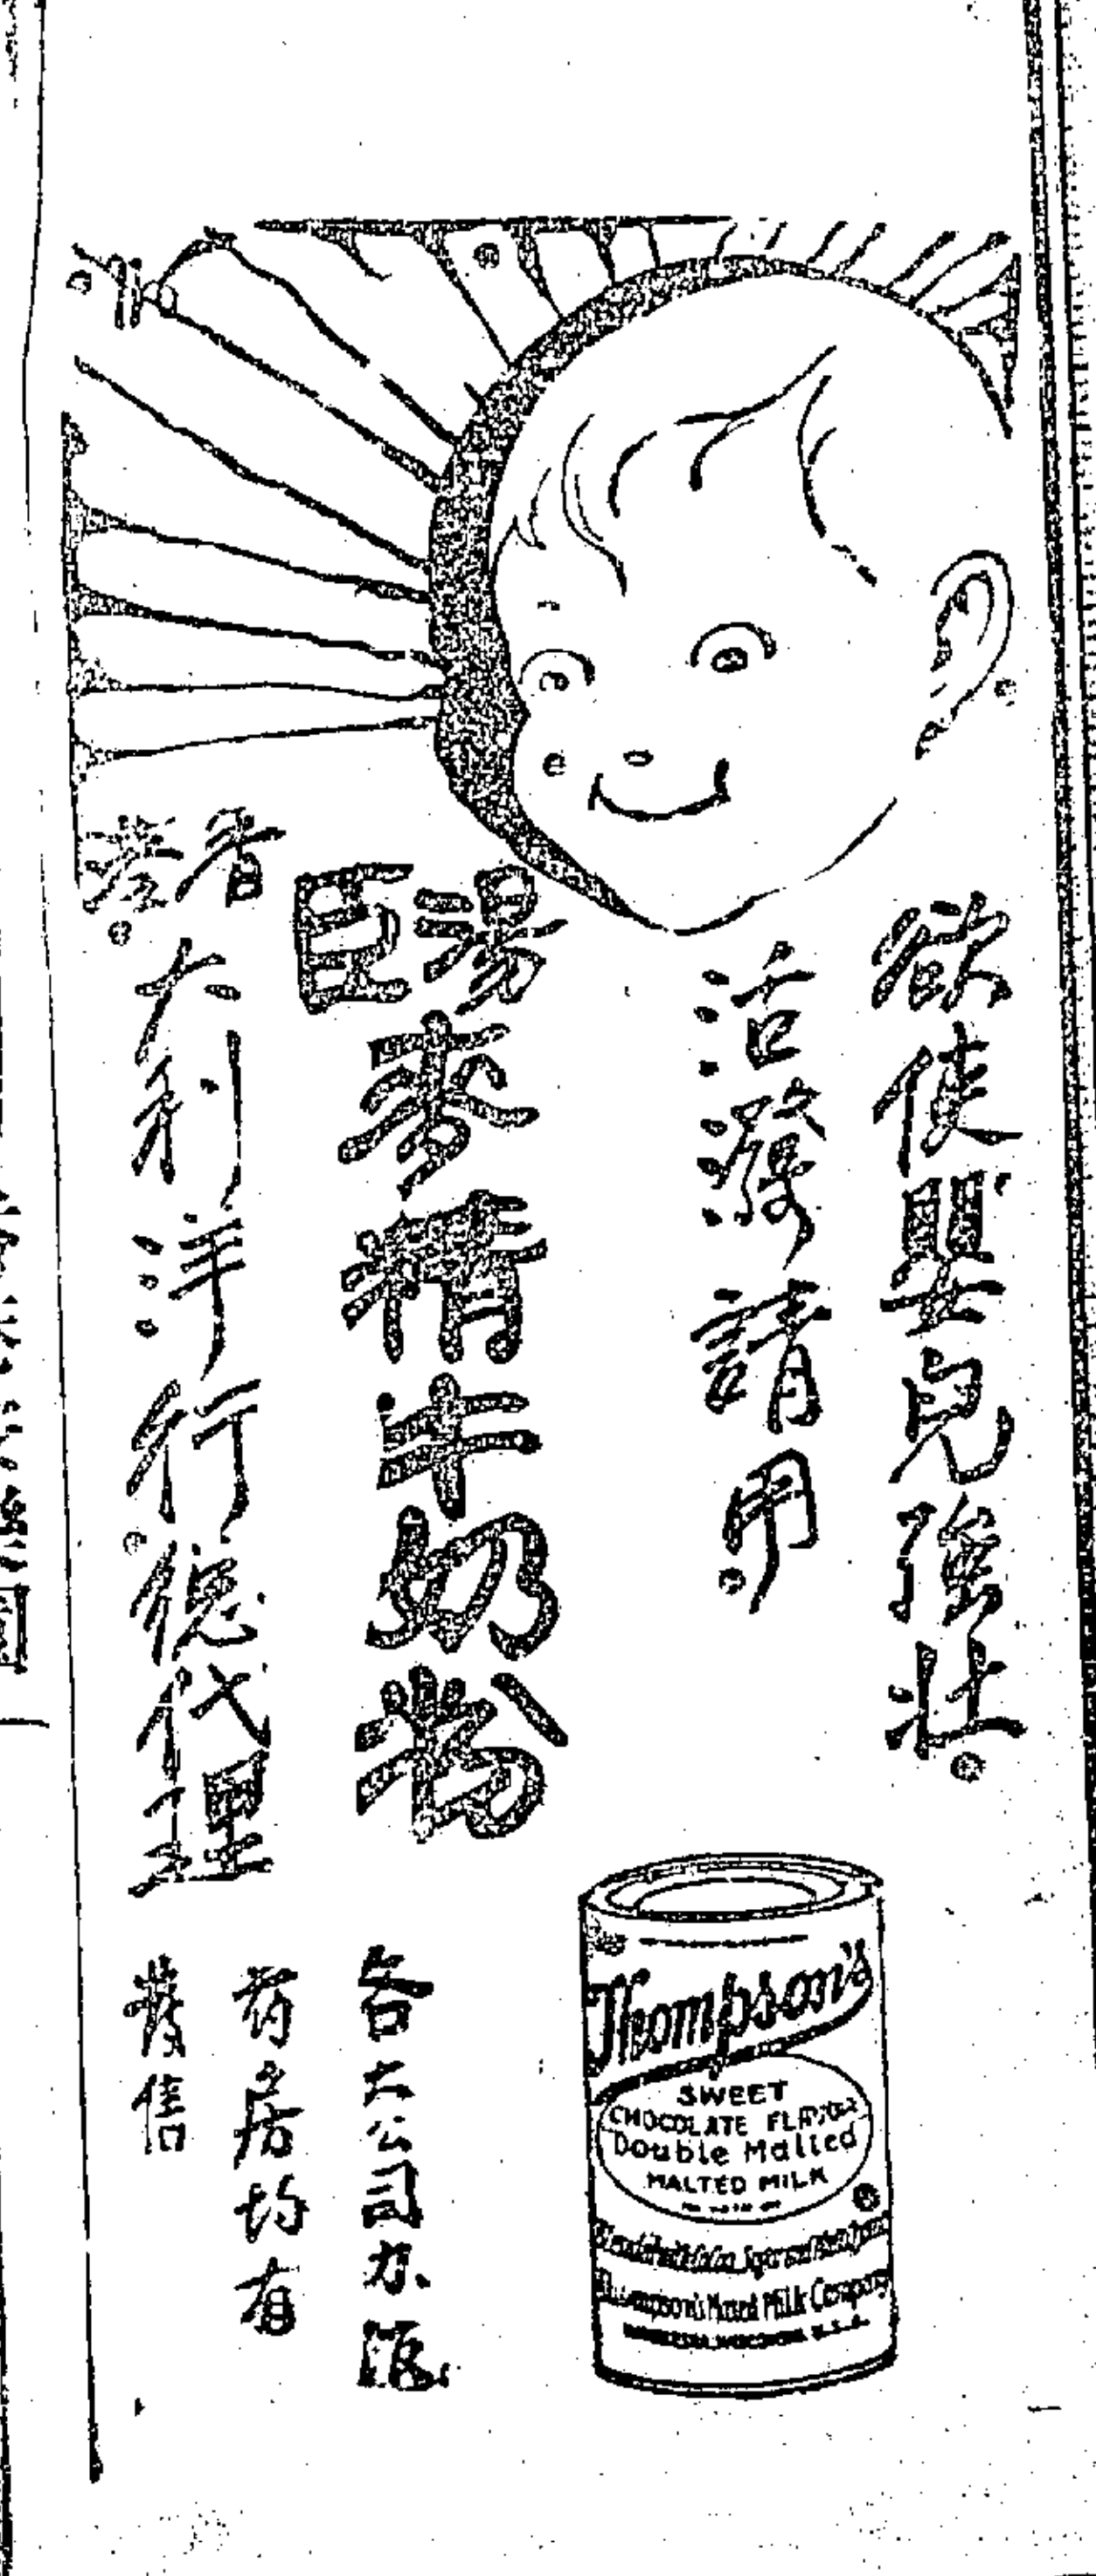 欲使嬰兒強壯。
活潑請用。
湯臣
麥精牛奶粉
香港。
大利洋行。總代理
各大公司办
葯房均有
發售
Thompson's
SWEET
CHOCOLATE FLAVOR
Double Malted
MALTED MILK
Thompson's Malted Milk Company
U.S.A.